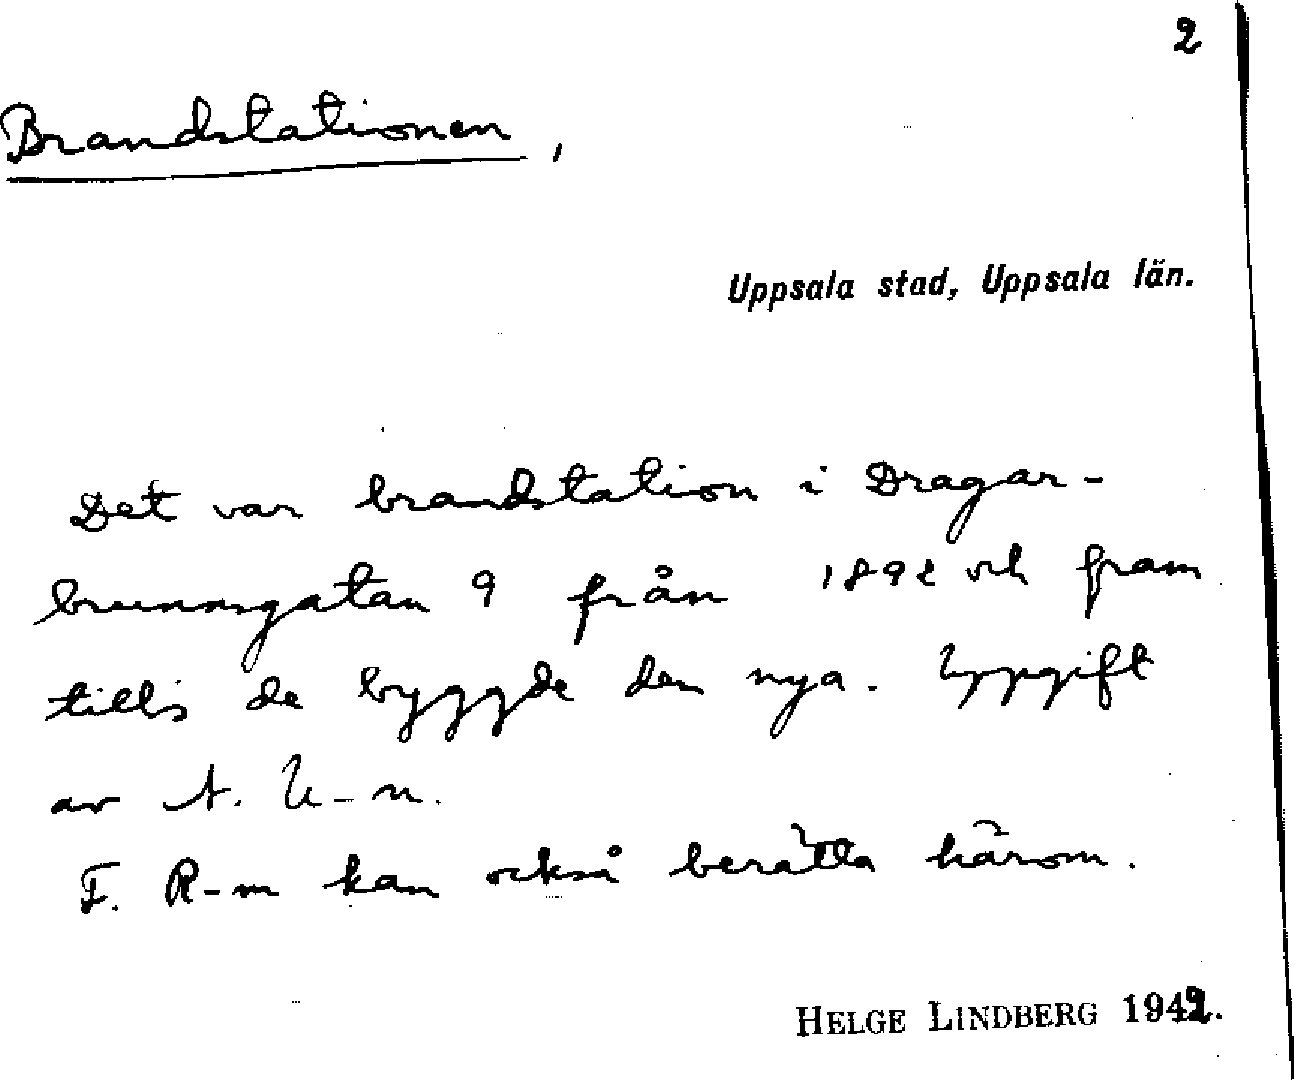 2
Brandstationen,
Uppsala stad, Uppsala län.
Det var brandstation i Dragar-
brunnsgatan 9 från 1892 och fram
tills de byggde den nya. Uppgift
av A. U-n.
F. R-m kan också berätta härom.
HELGE LINDBERG 1942.